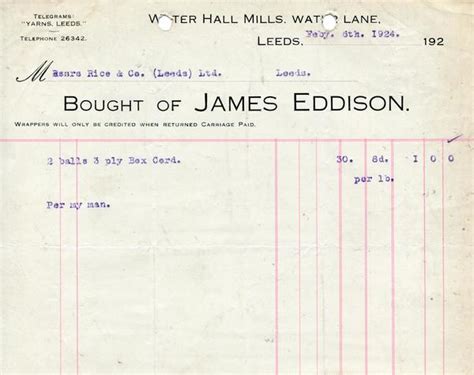 Telegrams:
"Yarns, Leeds."
Telephone 26342.
Water Hall Mills, Water Lane,
Leeds, Feby. 6th. 1924. 192
Messrs Rice & Co. (Leeds) Ltd. Leeds.
Bought of James Eddison.
Wrappers will only be credited when returned Carriage Paid.
2 balls 3 ply Box Cord. 30. 8d. 1 0 0
per lb.
Per my man.